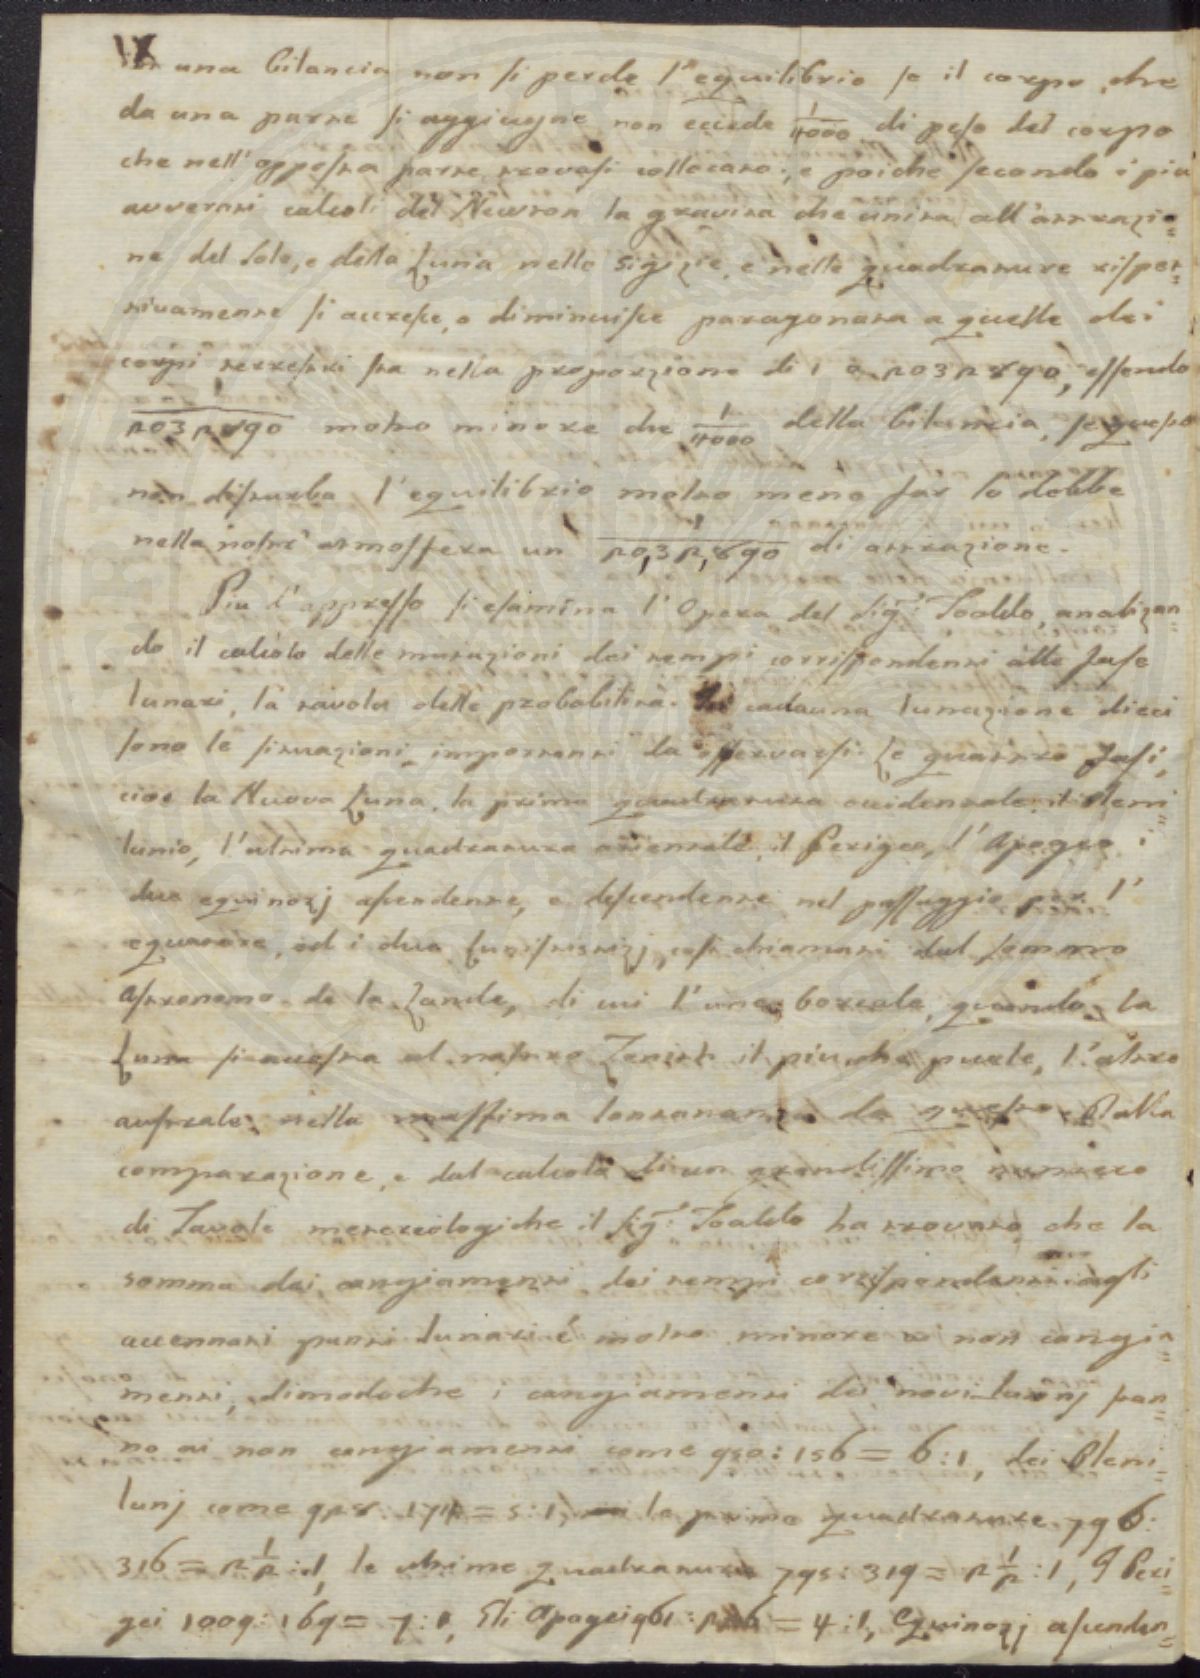 In una bilancia non si perde l'equilibrio se il corpo, che
da una parte si aggiugne non eccede 1/4000 di peso del corpo
che nell'opposta parte trovasi collocato; e poiche secondo i piu
avverati calcoli del Newton la gravita che unita all'attrazio=
ne del Sole, e della Luna nelle Sigizie, e nelle quadrature rispet=
tivamente si accresce, o diminuisce paragonata a quelle dei
corpi terrestri sta nella proporzione di 1 a 2032890, essendo
1/2032890 molto minore che 1/4000 della bilancia, se questo
non disturba l'equilibrio molto meno far lo debbe
nella nostr' atmosfera un 1/20,32,890 di attrazione.
Piu d'appresso si esamina l'Opera del Sig.r Toaldo, analizan=
do il calcolo delle mutazioni dei tempi corrispondenti alle fase
lunari, la tavola delle probabilità. In cadauna lunazione dieci
sono le situazioni importanti da osservarsi. Le quattro fasi,
cioe la Nuova Luna, la prima quadratura occidentale, il Pleni=
lunio, l'ultima quadratura orientale, il Perigeo, l'Apogeo, i
due equinozj ascendente, e descendente nel passaggio per l'
equatore, ed i due Lunistizj, così chiamati dal sommo
Astronomo de la Lande, di cui l'uno boreale, quando la
Luna si accosta al nostro Zenith il piu che puole, l'altro
australe nella massima lontananza da questo. Dalla
comparazione, e dal calcolo di un grandissimo numero
di Tavole metereologiche il Sig.r Toaldo ha trovato, che la
somma dei cangiamenti dei tempi corrispondenti agli
accennati punti lunari é molto minore ai non cangia=
menti, dimodoche i cangiamenti dei novilunj stan=
no ai non cangiamenti come 950:156=6:1, dei Pleni=
lunj come 928:174=5:1, le prime quadrature 796:
316=2 1/2:1, le ultime quadrature 795:319=2 1/2:1, I Peri=
gei 1009:169=7:1, Gli Apogei 961:226=4:1, Equinozj ascenden=